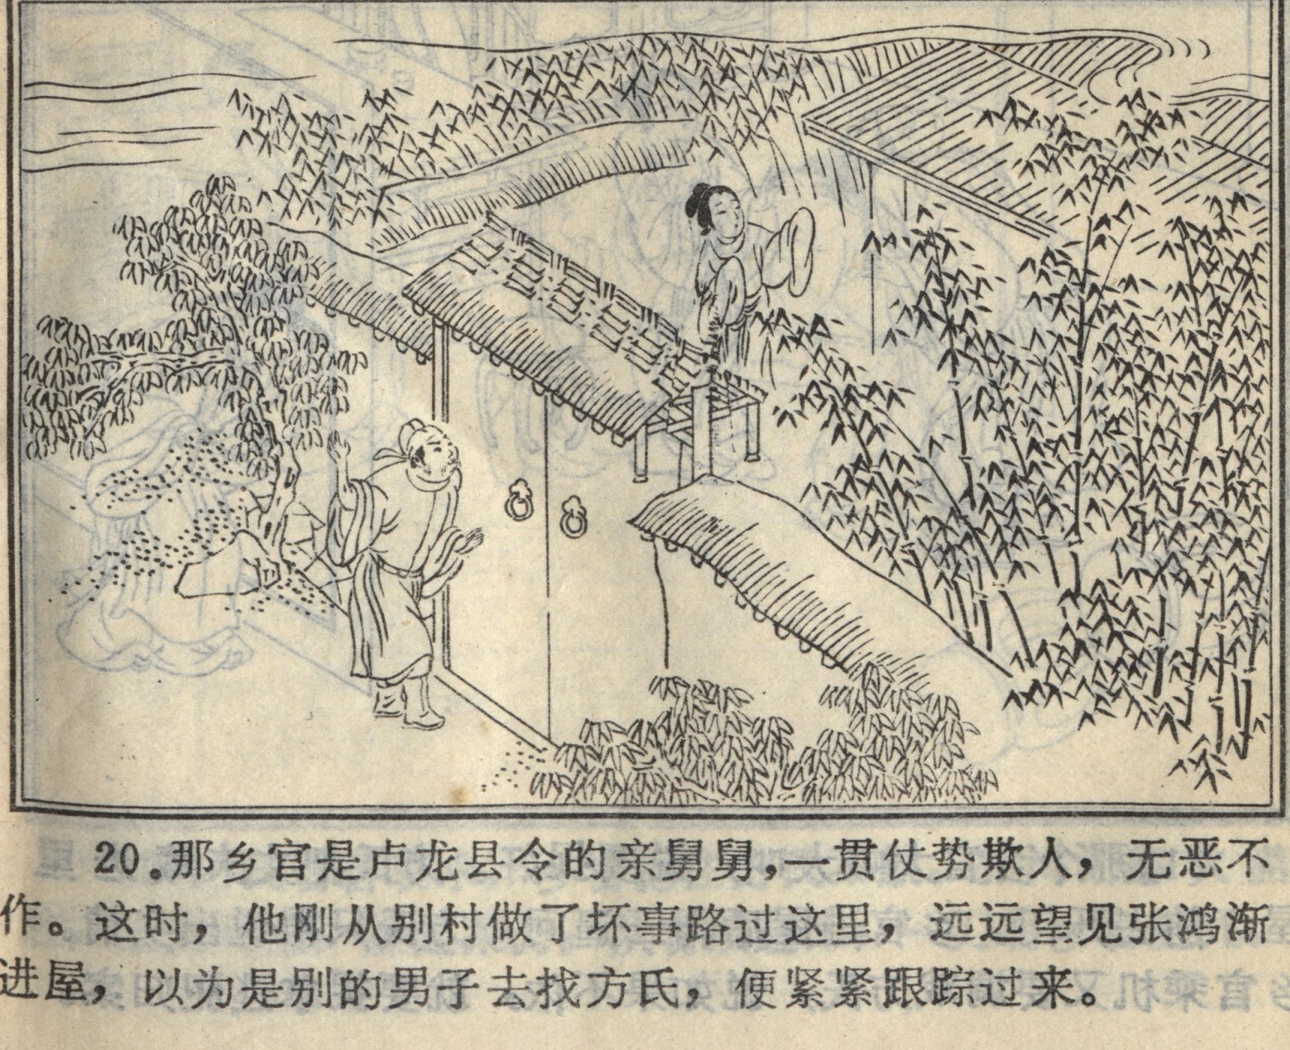 20.那乡官是卢龙县令的亲舅舅,一贯仗势欺人，无恶不
作。这时，他刚从别村做了坏事路过这里，远远望见张鸿渐
进屋，以为是别的男子去找方氏，便紧紧跟踪过来。